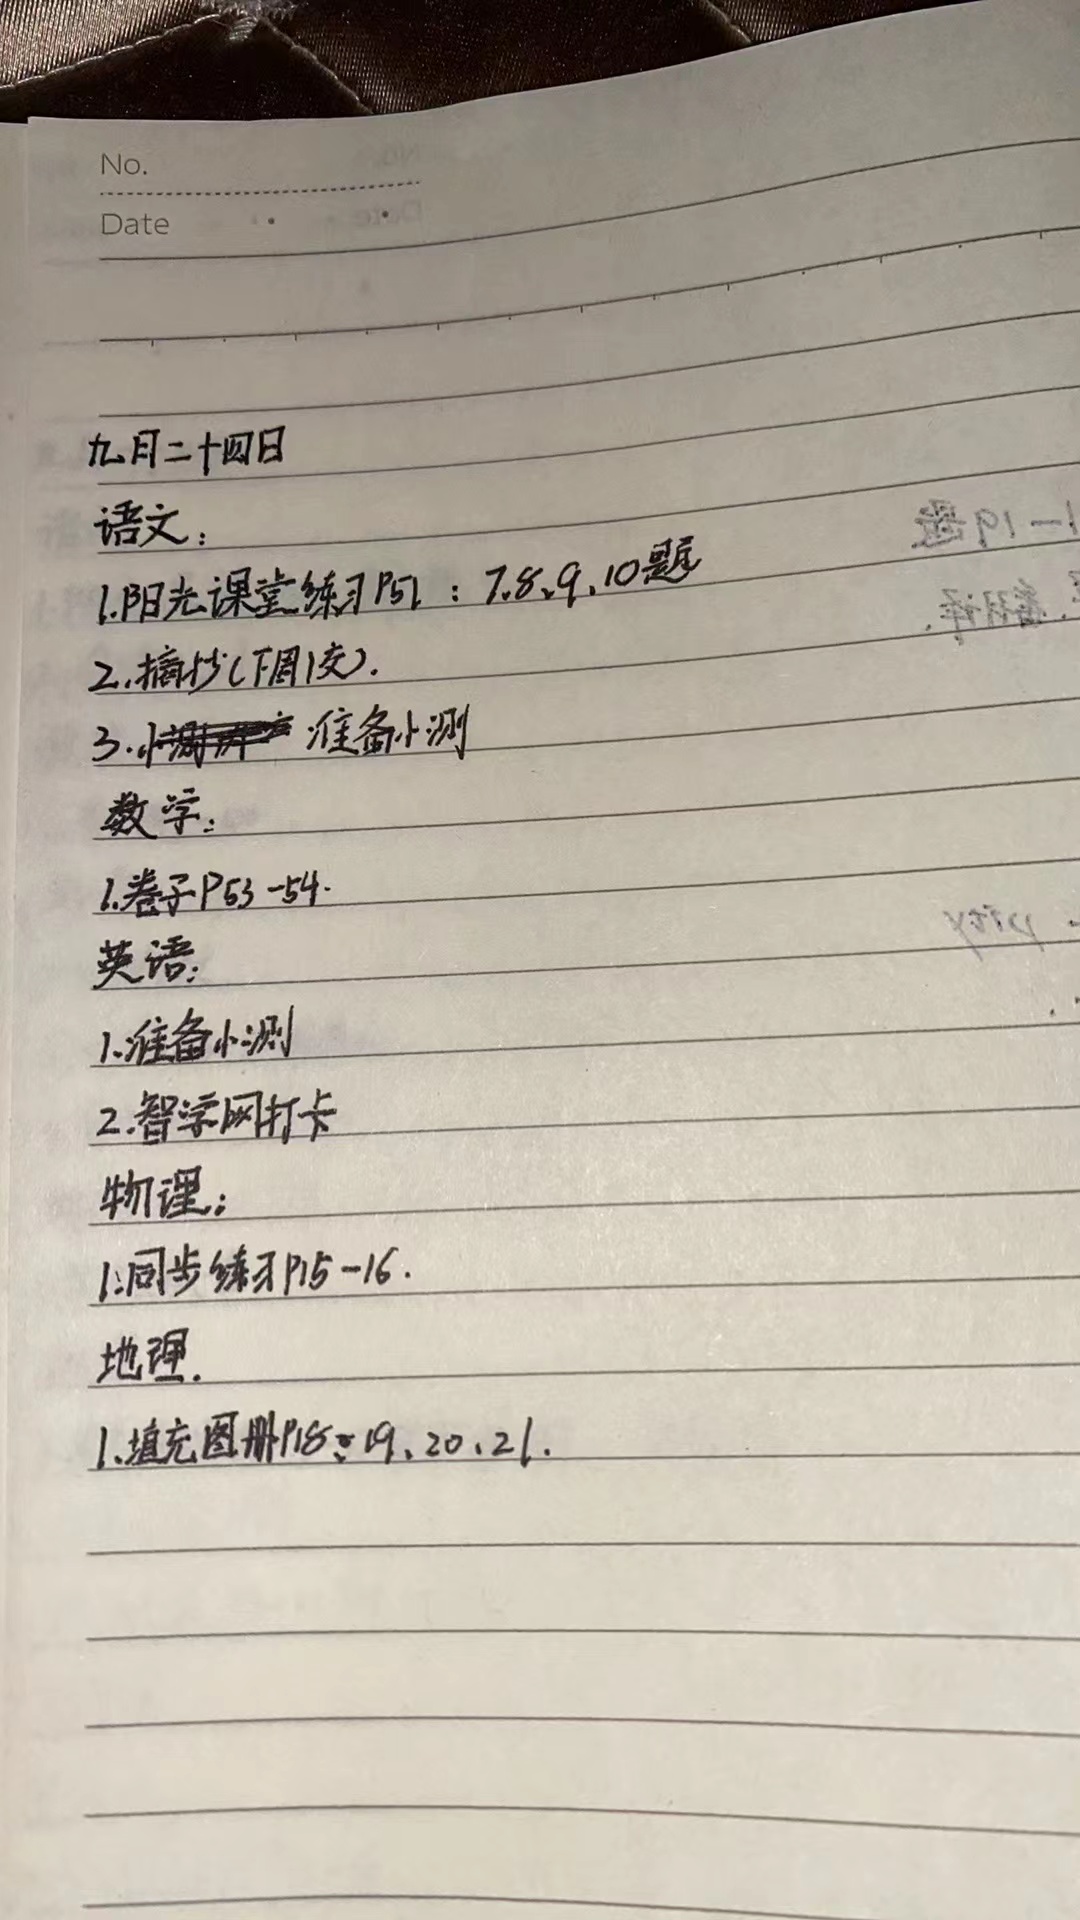 No.
Date
九月二十四日
语文：
1.阳光课堂练习P51：7、8、9、10题
2.摘抄（下周1交）.
3. 准备小测
数学：
1.卷子P53-54.
英语：
1.准备小测
2.智学网打卡
物理：
1.同步练习P15-16.
地理.
1.填充图册P18、19、20、21.